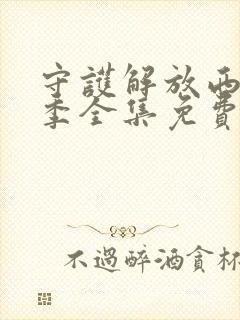 守護解放西
季全集免費
不過醉酒貪杯